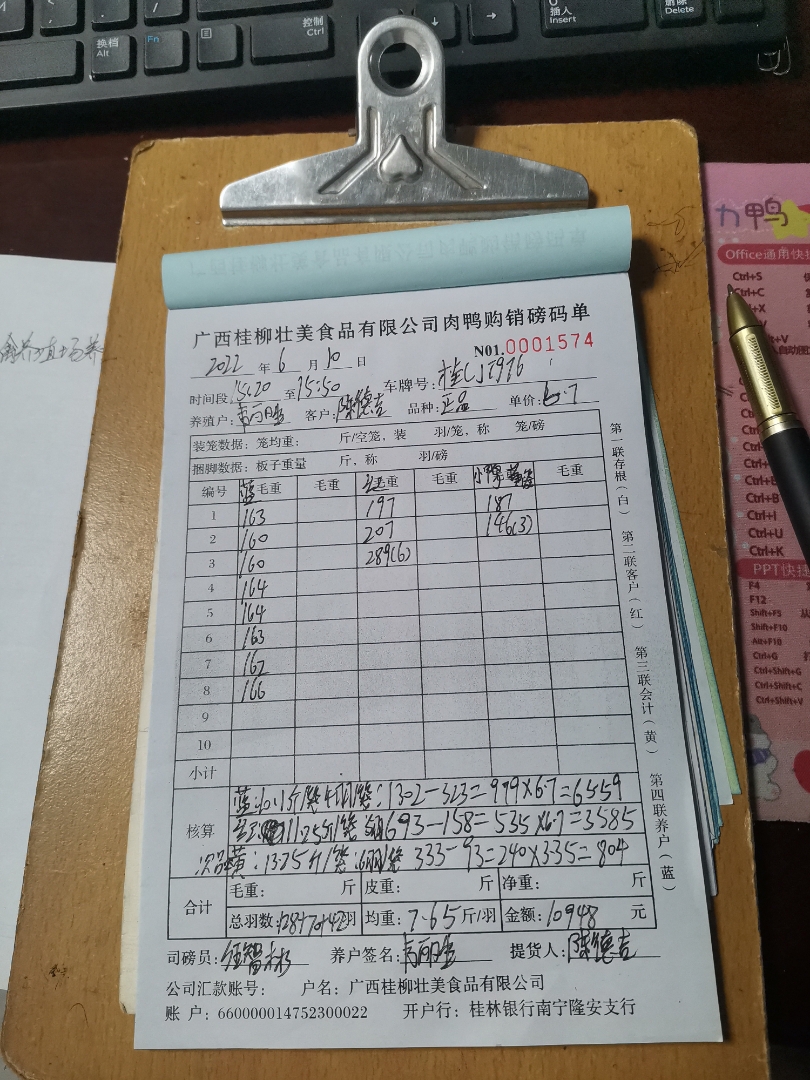 控制
Ctrl
换档
Alt
Fn
插入
Insert
删除
Delete
广西桂柳壮美食品有限公司肉鸭购销磅码单
2022 年 6 月 10 日 N01.0001574
时间段 15:20 至 15:50 车牌号:
养殖户: 客户:陈德吉 品种:正品 单价:6.7
装笼数据:笼均重: 斤/空笼,装 羽/笼,称 笼/磅
捆脚数据:板子重量 斤,称 羽/磅
编号 蓝毛重 毛重 红毛重 毛重 毛重
1 163 197 187
2 160 207 146(3)
3 160 289(6)
4 164
5 164
6 163
7 162
8 166
9
10
小计
核算
蓝:10.1斤/笼 4羽/笼:1302-323=979×6.7=6559
11.25斤/笼 693-158=535×6.7=3585
次品黄:13.25斤/笼:6羽/笼 333-93=240×3.35=804
合计 毛重: 斤 皮重: 斤 净重: 斤
总羽数:128+70+42羽 均重:7.65斤/羽 金额:10948 元
司磅员: 养户签名: 提货人:陈德吉
公司汇款账号: 户名:广西桂柳壮美食品有限公司
账 户:660000014752300022 开户行:桂林银行南宁隆安支行
第一联存根(白) 第二联客户(红) 第三联会计(黄) 第四联养户(蓝)
力鸭
Office通用快
Ctrl+S
Ctrl+C
Ctrl+B
Ctrl+I
Ctrl+U
Ctrl+K
PPT快捷
F4
F12
Shift+F5
Shift+F10
Alt+F10
Ctrl+G
Ctrl+Shift+G
Ctrl+Shift+C
Ctrl+Shift+V